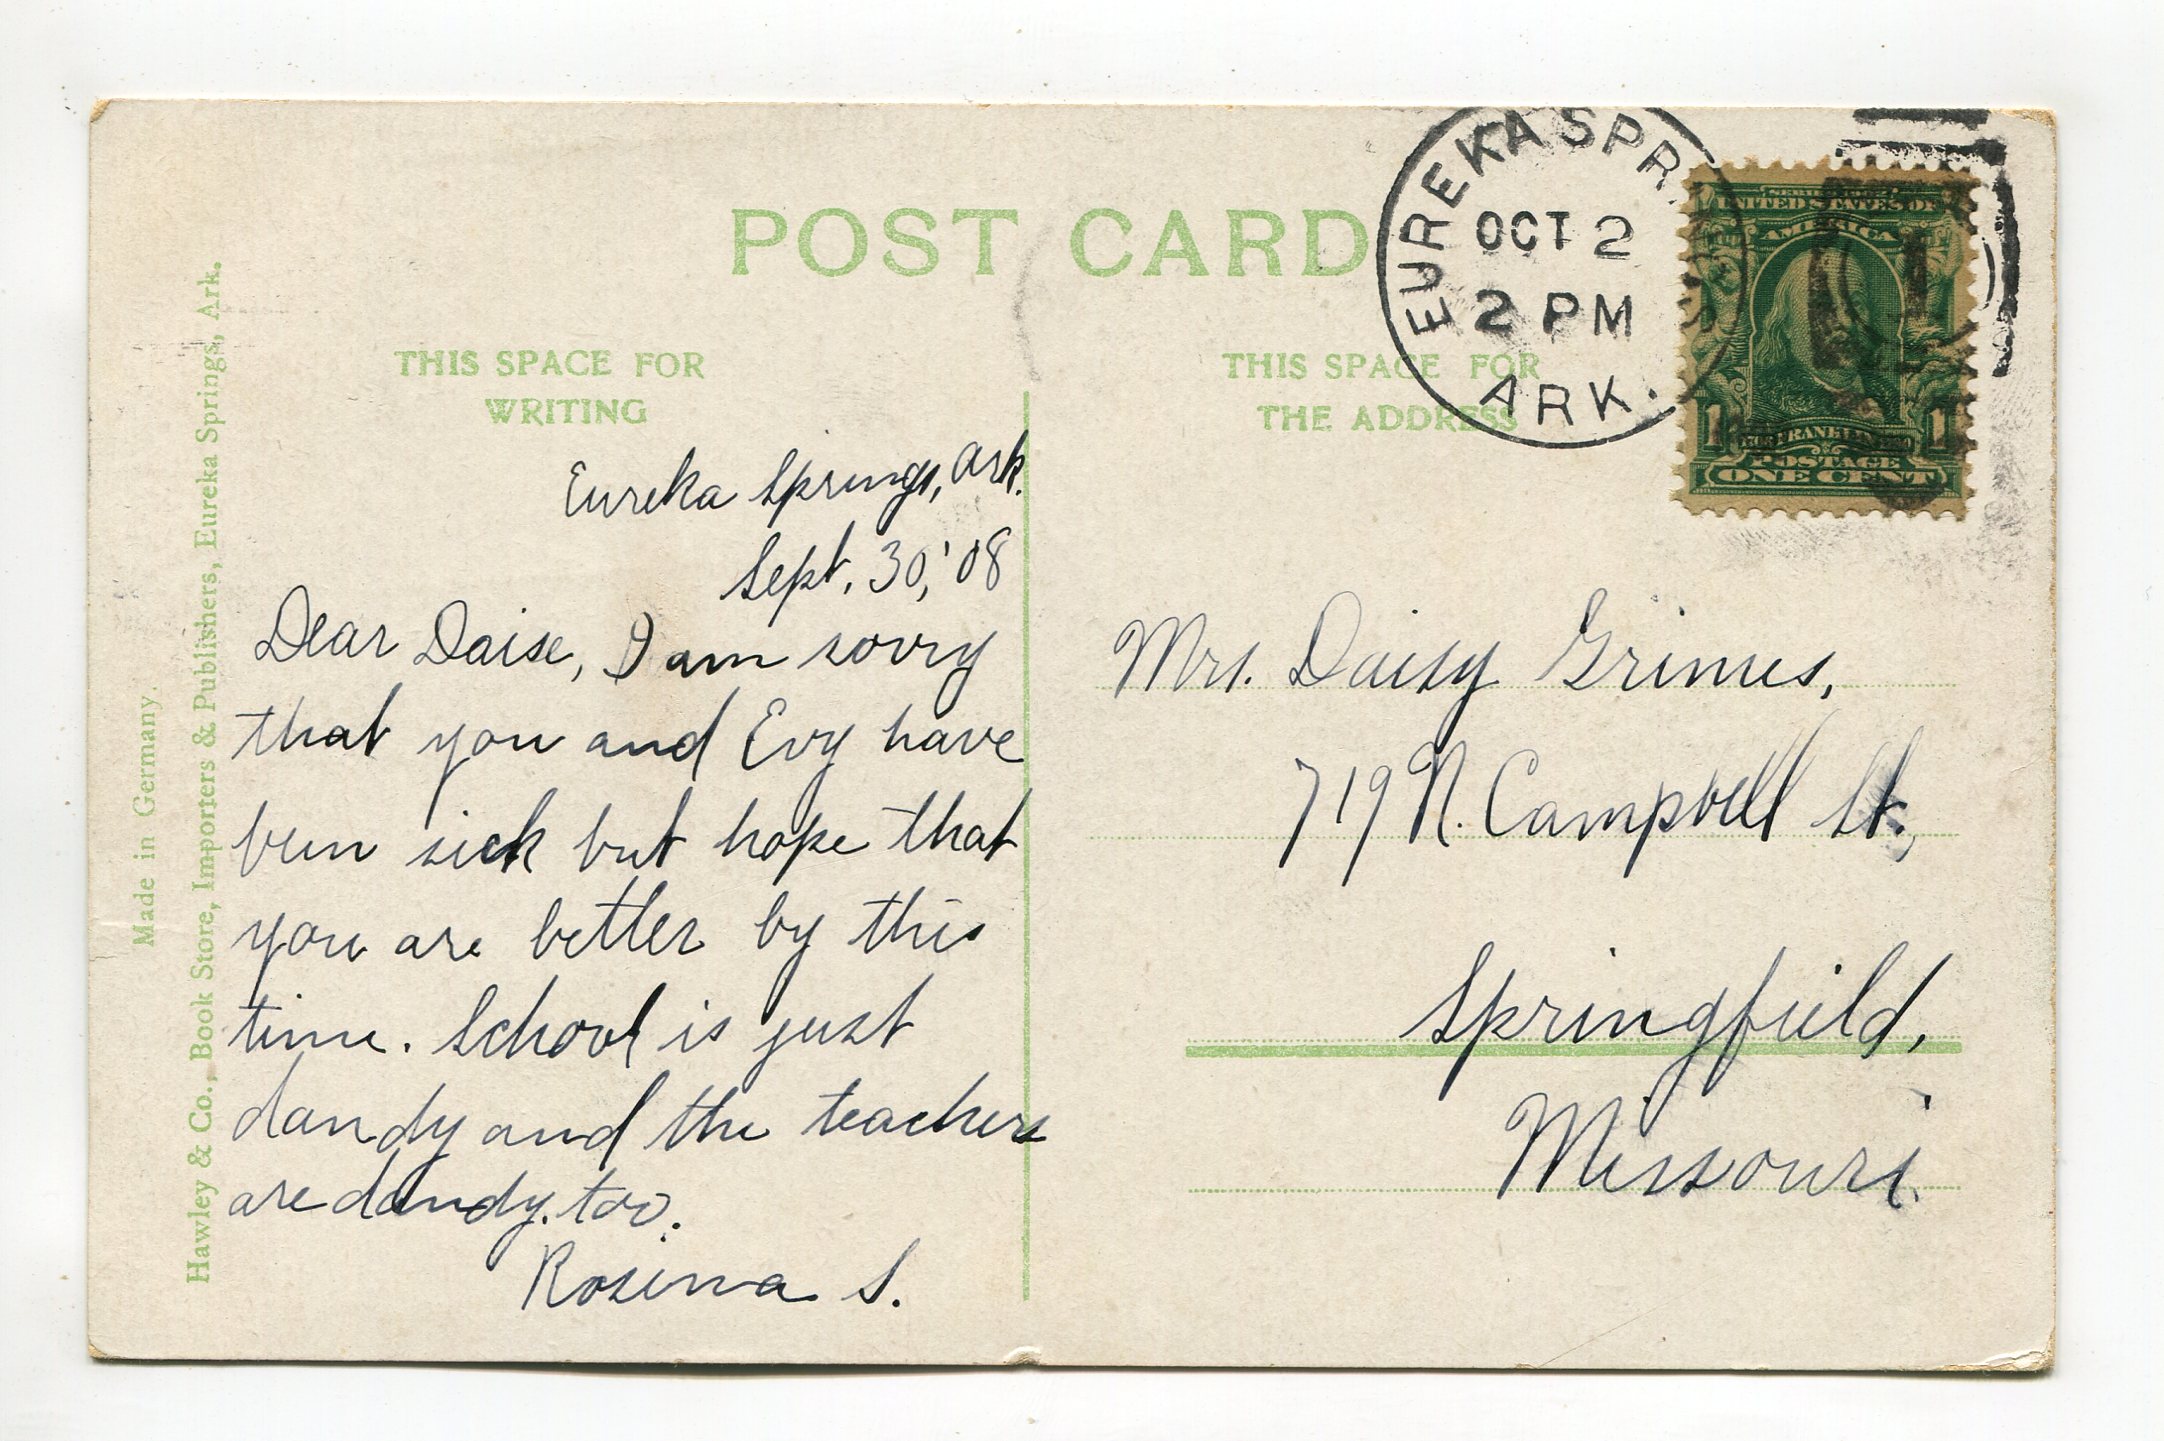 POST CARD
THIS SPACE FOR
WRITING
THIS SPACE FOR
THE ADDRESS
EUREKA SPR
OCT 2
2 PM
ARK.
UNITED STATES OF
AMERICA
1 1
FRANKLIN
POSTAGE
ONE CENT
Made in Germany.
Hawley & Co., Book Store, Importers & Publishers, Eureka Springs, Ark.
Eureka Springs, Ark.
Sept. 30, '08
Dear Daise, I am sorry
that you and Evy have
been sick but hope that
you are better by this
time. School is just
dandy and the teachers
are dandy. too.
Rosina S.
Mrs. Daisy Grimes,
719 N. Campbell St.,
Springfield,
Missouri.